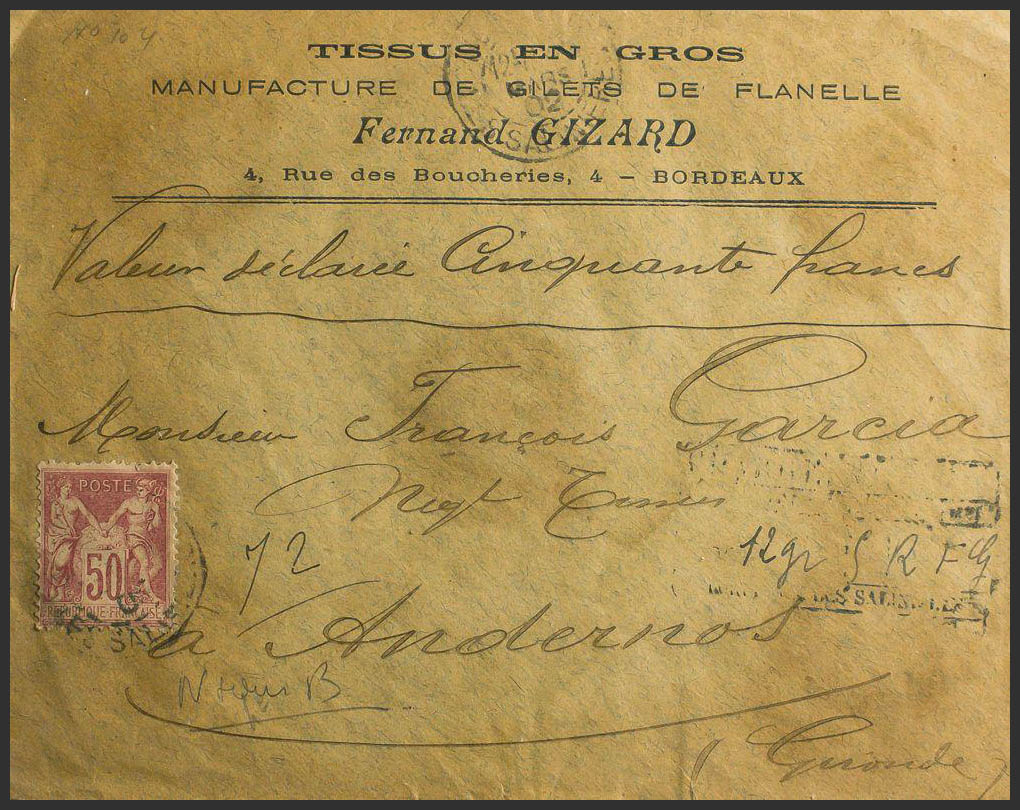 No 104
TISSUS EN GROS
MANUFACTURE DE GILETS DE FLANELLE
Fernand GIZARD
4, Rue des Boucheries, 4 – BORDEAUX
Valeur déclarée Cinquante francs
Monsieur François Garcia
Negt
POSTE
50
REPUBLIQUE FRANCAISE
72
12gr 5
à Andernos
(Gironde)